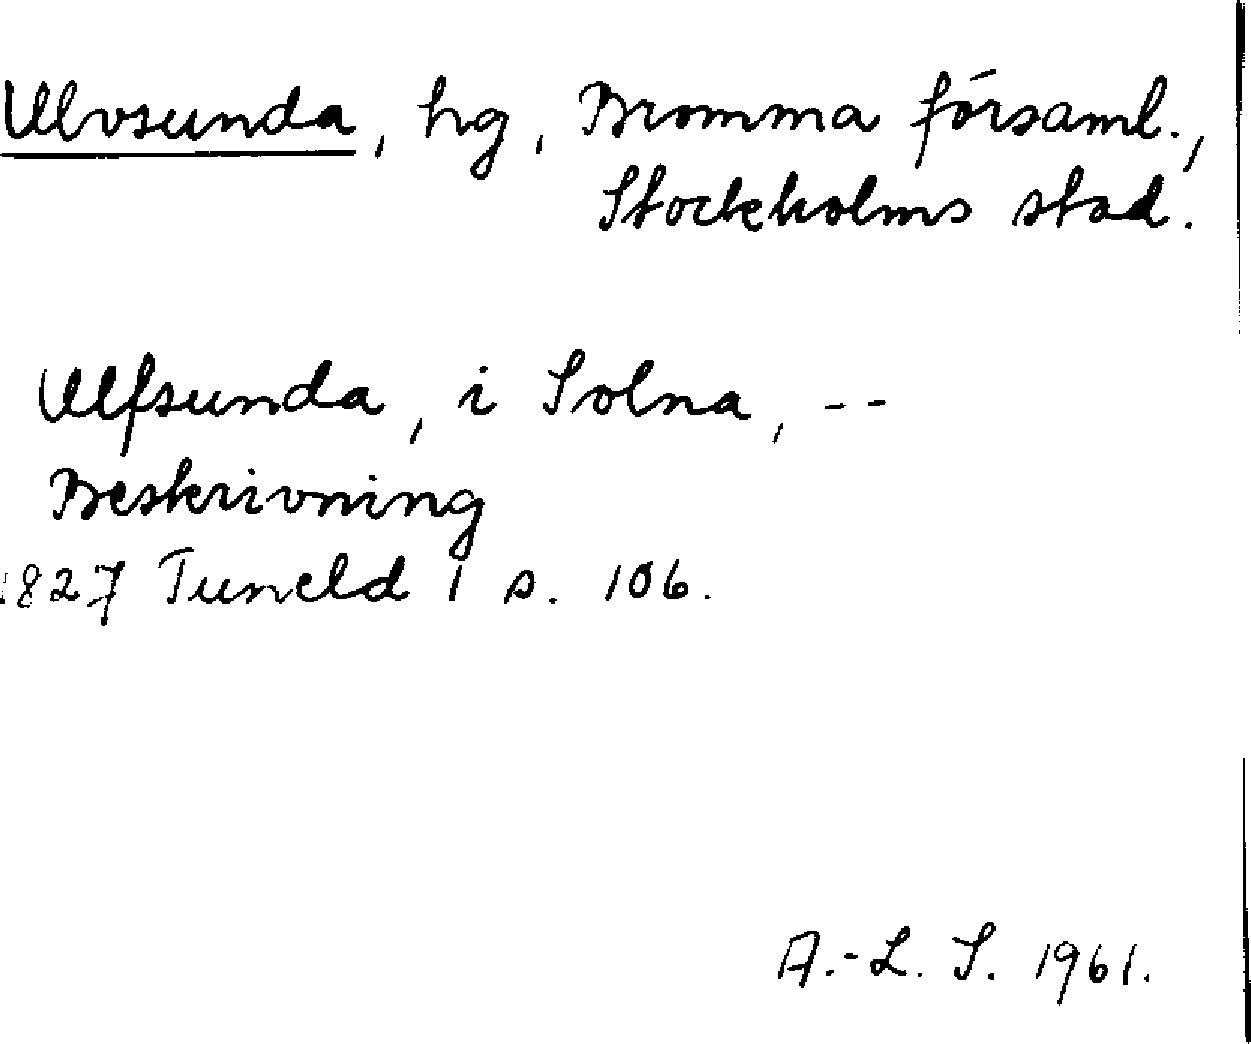 Ulvsunda, hg, Bromma församl.,
Stockholms stad.
Ulfsunda, i Solna, --
Beskrivning
1827 Tuneld 1 s. 106.
A.-L. S. 1961.